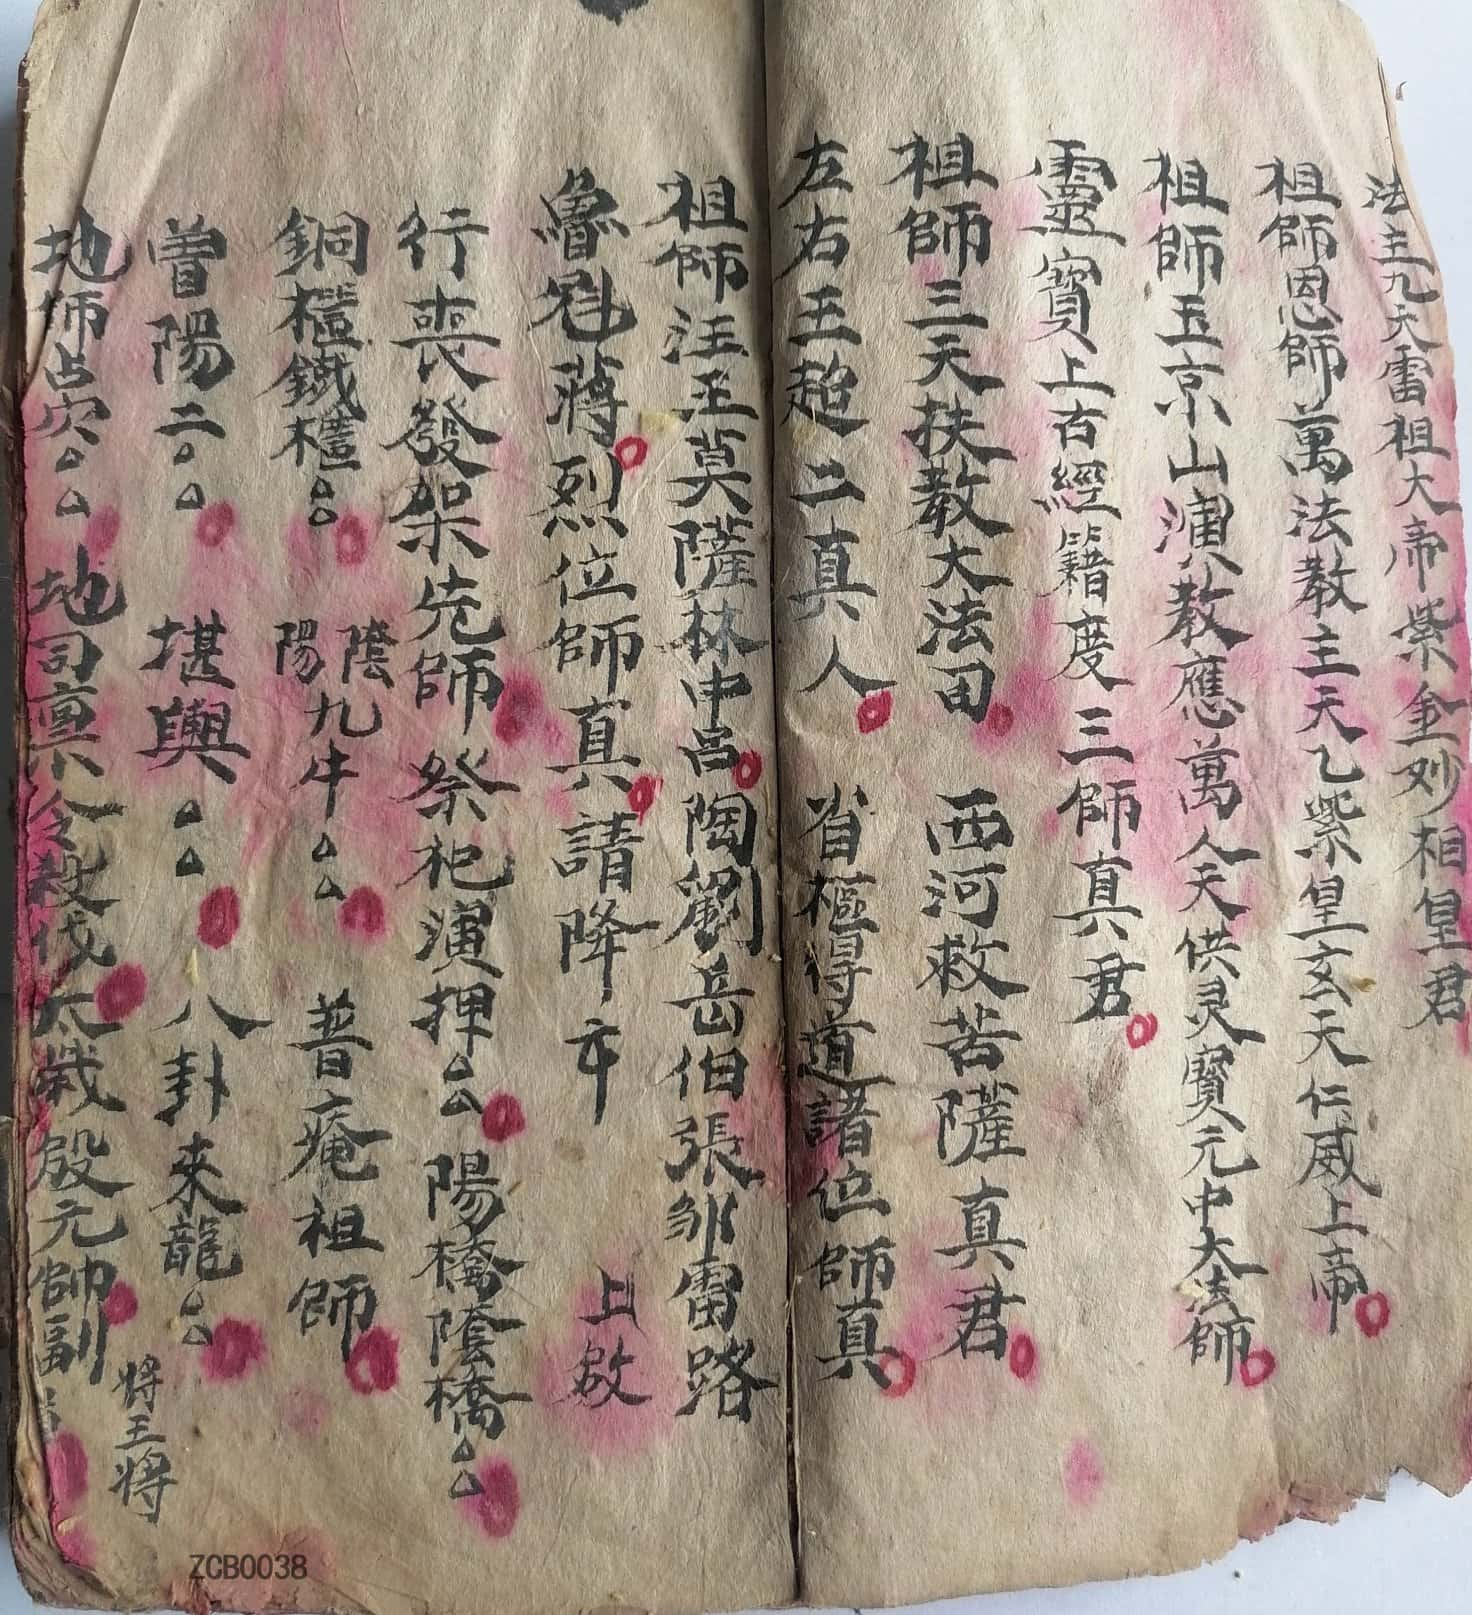 法主九天雷祖大帝紫金妙相皇君
祖師恩師萬法教主天乙紫皇玄天仁威上帝
祖師玉京山演教應萬人天供灵寶元中大法師
靈寶上古經籍度三師真君
祖師三天扶教大法田 西河救苦薩真君
左右王趙二真人 省樞得道諸位師真
祖師汪王莫薩林申呂陶劉岳伯張鄒雷路
魯魁蔣烈位師真請降
上啟
行喪發架先師 祭祀演押 陽橋陰橋
銅櫃鐵櫃 陰陽九牛 普庵祖師
曾陽二 堪輿 八卦來龍
地師占穴 地司稟令殺伐太歲殷元帥副
將王將
ZCB0038